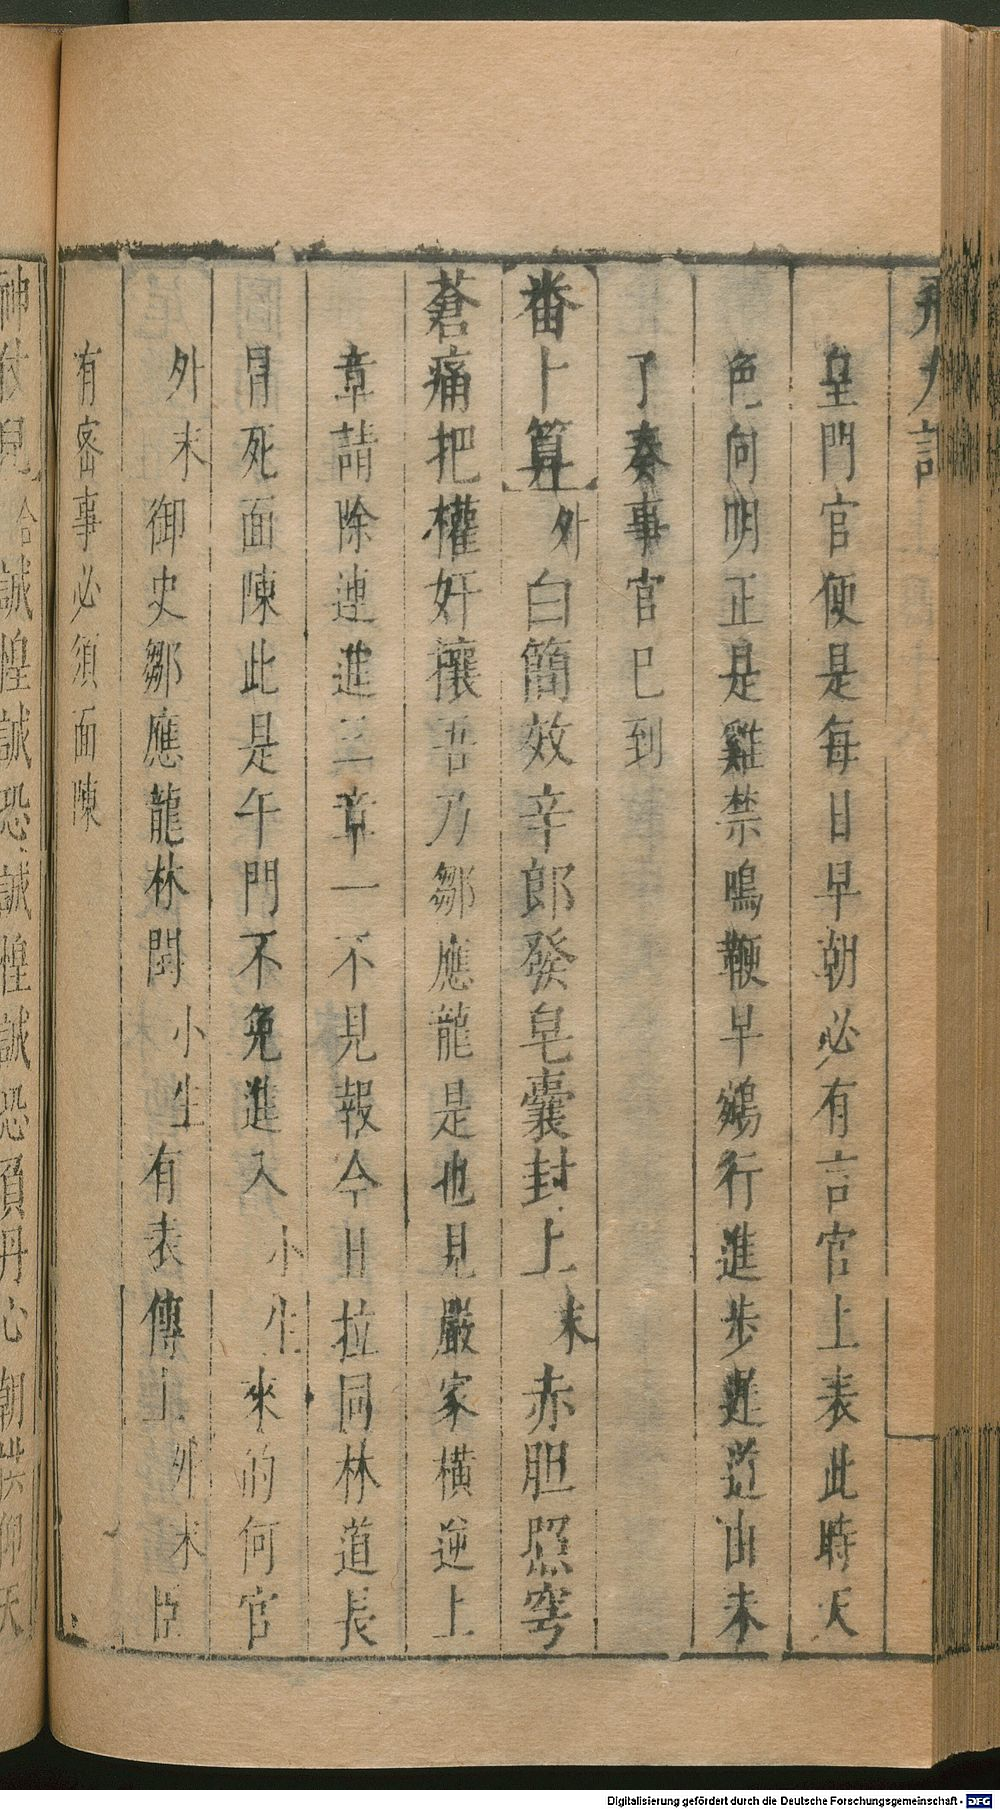 皇門官便是每日早朝必有言官上表此時天
色向明正是雞禁鳴鞭早鵷行進步遲道由未
了奏事官已到
番卜算外白簡效辛郎發皂囊封上末赤胆照穹
蒼痛把權奸攘吾乃鄒應龍是也見嚴家橫逆上
章請除連進三章一不見報今日拉同林道長
冒死面陳此是午門不免進入小生來的何官
外末御史鄒應龍林閏小生有表傳上外末臣
有密事必須面陳
誠惶誠恐誠惶誠恐頁丹心朝
Digitalisierung gefördert durch die Deutsche Forschungsgemeinschaft - DFG